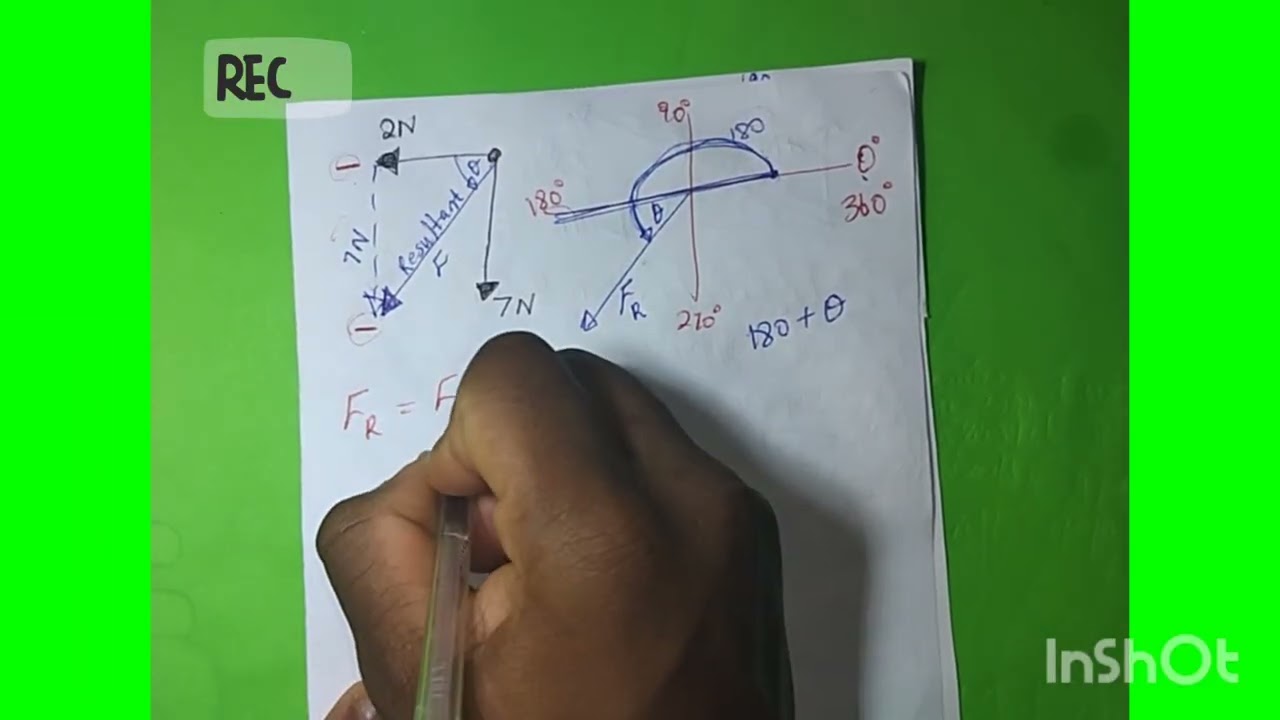 REC
2N
θ
7N
Resultant
F
7N
90°
180
180°
θ
0°
360°
F_R
270°
180 + θ
F_R = F
InShOt